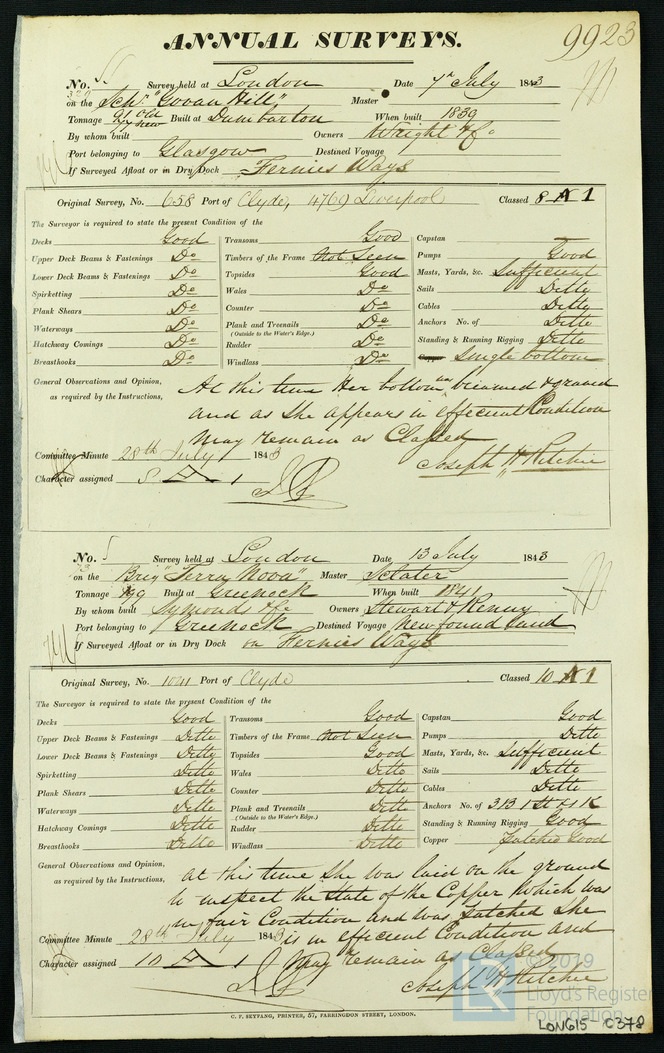 ANNUAL SURVEYS.
9923
No. Survey held at London Date 7th July 1843
on the Schr "Govan Hill" Master
Tonnage 91 Old 77 New Built at Dumbarton When built 1839
By whom built Owners Wright & Co
Port belonging to Glasgow Destined Voyage
If Surveyed Afloat or in Dry Dock Fernies Ways
Original Survey, No. 658 Port of Clyde, 4769 Liverpool Classed 8 A 1
The Surveyor is required to state the present Condition of the
Decks Good Transoms Good Capstan
Upper Deck Beams & Fastenings Do Timbers of the Frame Not Seen Pumps Good
Lower Deck Beams & Fastenings Do Topsides Good Masts, Yards, &c. Sufficient
Spirketting Do Wales Do Sails Ditto
Plank Shears Do Counter Do Cables Ditto
Waterways Do Plank and Treenails Do Anchors No. of Ditto
(Outside to the Water's Edge.)
Hatchway Comings Do Rudder Do Standing & Running Rigging Ditto
Breasthooks Do Windlass Do Copper Single bottom
General Observations and Opinion, as required by the Instructions,
At this time Her bottom was breamed & graved
and as She appears in efficient Condition
May remain as Classed
Joseph H Ritchie
Committee Minute 28th July 1843
Character assigned 8 A 1
No. Survey held at London Date 13 July 1843
on the Brig "Terra Nova" Master Sclater
Tonnage 199 Built at Greenock When built 1841
By whom built Symonds & Co Owners Stewart & Renny
Port belonging to Greenock Destined Voyage Newfoundland
If Surveyed Afloat or in Dry Dock on Fernies Ways
Original Survey, No. 1041 Port of Clyde Classed 10 A 1
The Surveyor is required to state the present Condition of the
Decks Good Transoms Good Capstan Good
Upper Deck Beams & Fastenings Ditto Timbers of the Frame Not Seen Pumps Ditto
Lower Deck Beams & Fastenings Ditto Topsides Good Masts, Yards, &c. Sufficient
Spirketting Ditto Wales Ditto Sails Ditto
Plank Shears Ditto Counter Ditto Cables Ditto
Waterways Ditto Plank and Treenails Ditto Anchors No. of 3 B 1 St & 1 K
(Outside to the Water's Edge.)
Hatchway Comings Ditto Rudder Ditto Standing & Running Rigging Good
Breasthooks Ditto Windlass Ditto Copper Patched Good
General Observations and Opinion, as required by the Instructions,
At this time She was laid on the ground
to inspect the State of the Copper which was
in fair Condition and was patched She
is in efficient Condition and
May remain as Classed
Joseph H Ritchie
Committee Minute 28th July 1843
Character assigned 10 A 1
C. F. SEYFANG, PRINTER, 57, FARRINGDON STREET, LONDON.
© 2019
Lloyd's Register
Foundation
LON615-0378